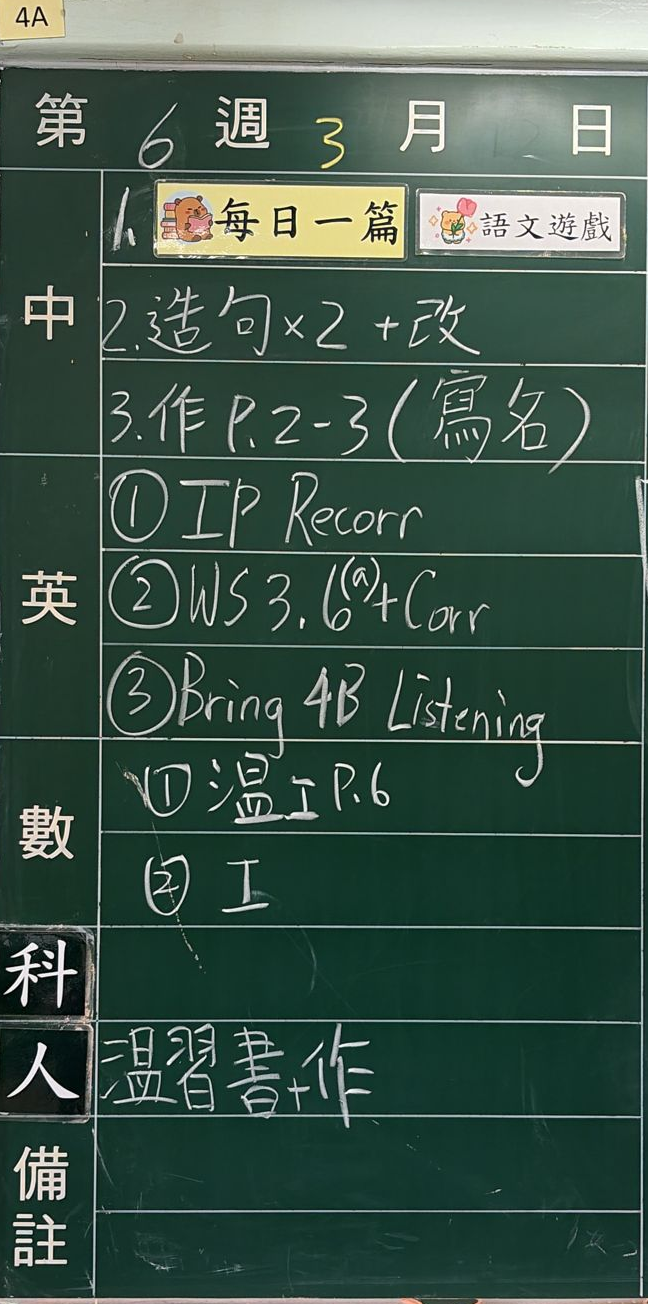 4A
第 6 週 3 月 日
中
1. 每日一篇 語文遊戲
2. 造句×2 +改
3. 作 P.2-3 (寫名)
英
① IP Recorr
② WS 3.6(a)+Corr
③ Bring 4B Listening
數
① 溫工 P.6
② 工
科
人 溫習書+作
備註